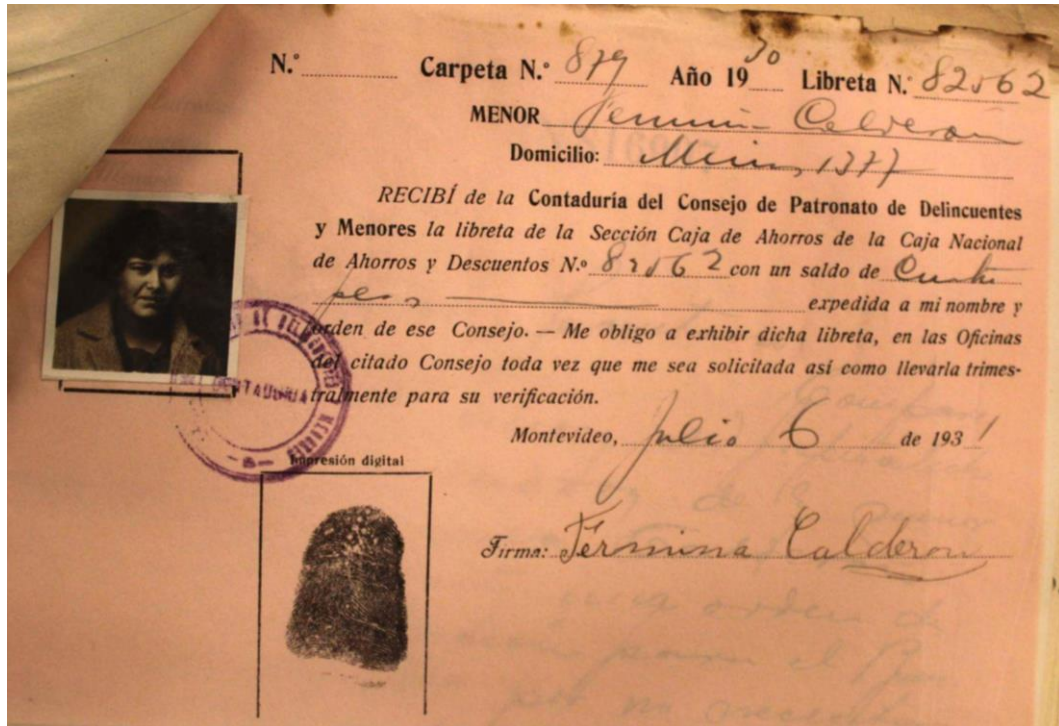 N.° Carpeta N.° 879 Año 1930 Libreta N.° 82562
MENOR Fermina Calderón
Domicilio: Minas 1377
RECIBÍ de la Contaduría del Consejo de Patronato de Delincuentes
y Menores la libreta de la Sección Caja de Ahorros de la Caja Nacional
de Ahorros y Descuentos N.° 82562 con un saldo de
pesos expedida a mi nombre y
orden de ese Consejo. — Me obligo a exhibir dicha libreta, en las Oficinas
del citado Consejo toda vez que me sea solicitada así como llevarla trimes-
tralmente para su verificación.
CONTADURIA
Montevideo, Julio 6 de 1931
Impresión digital
Firma: Fermina Calderon